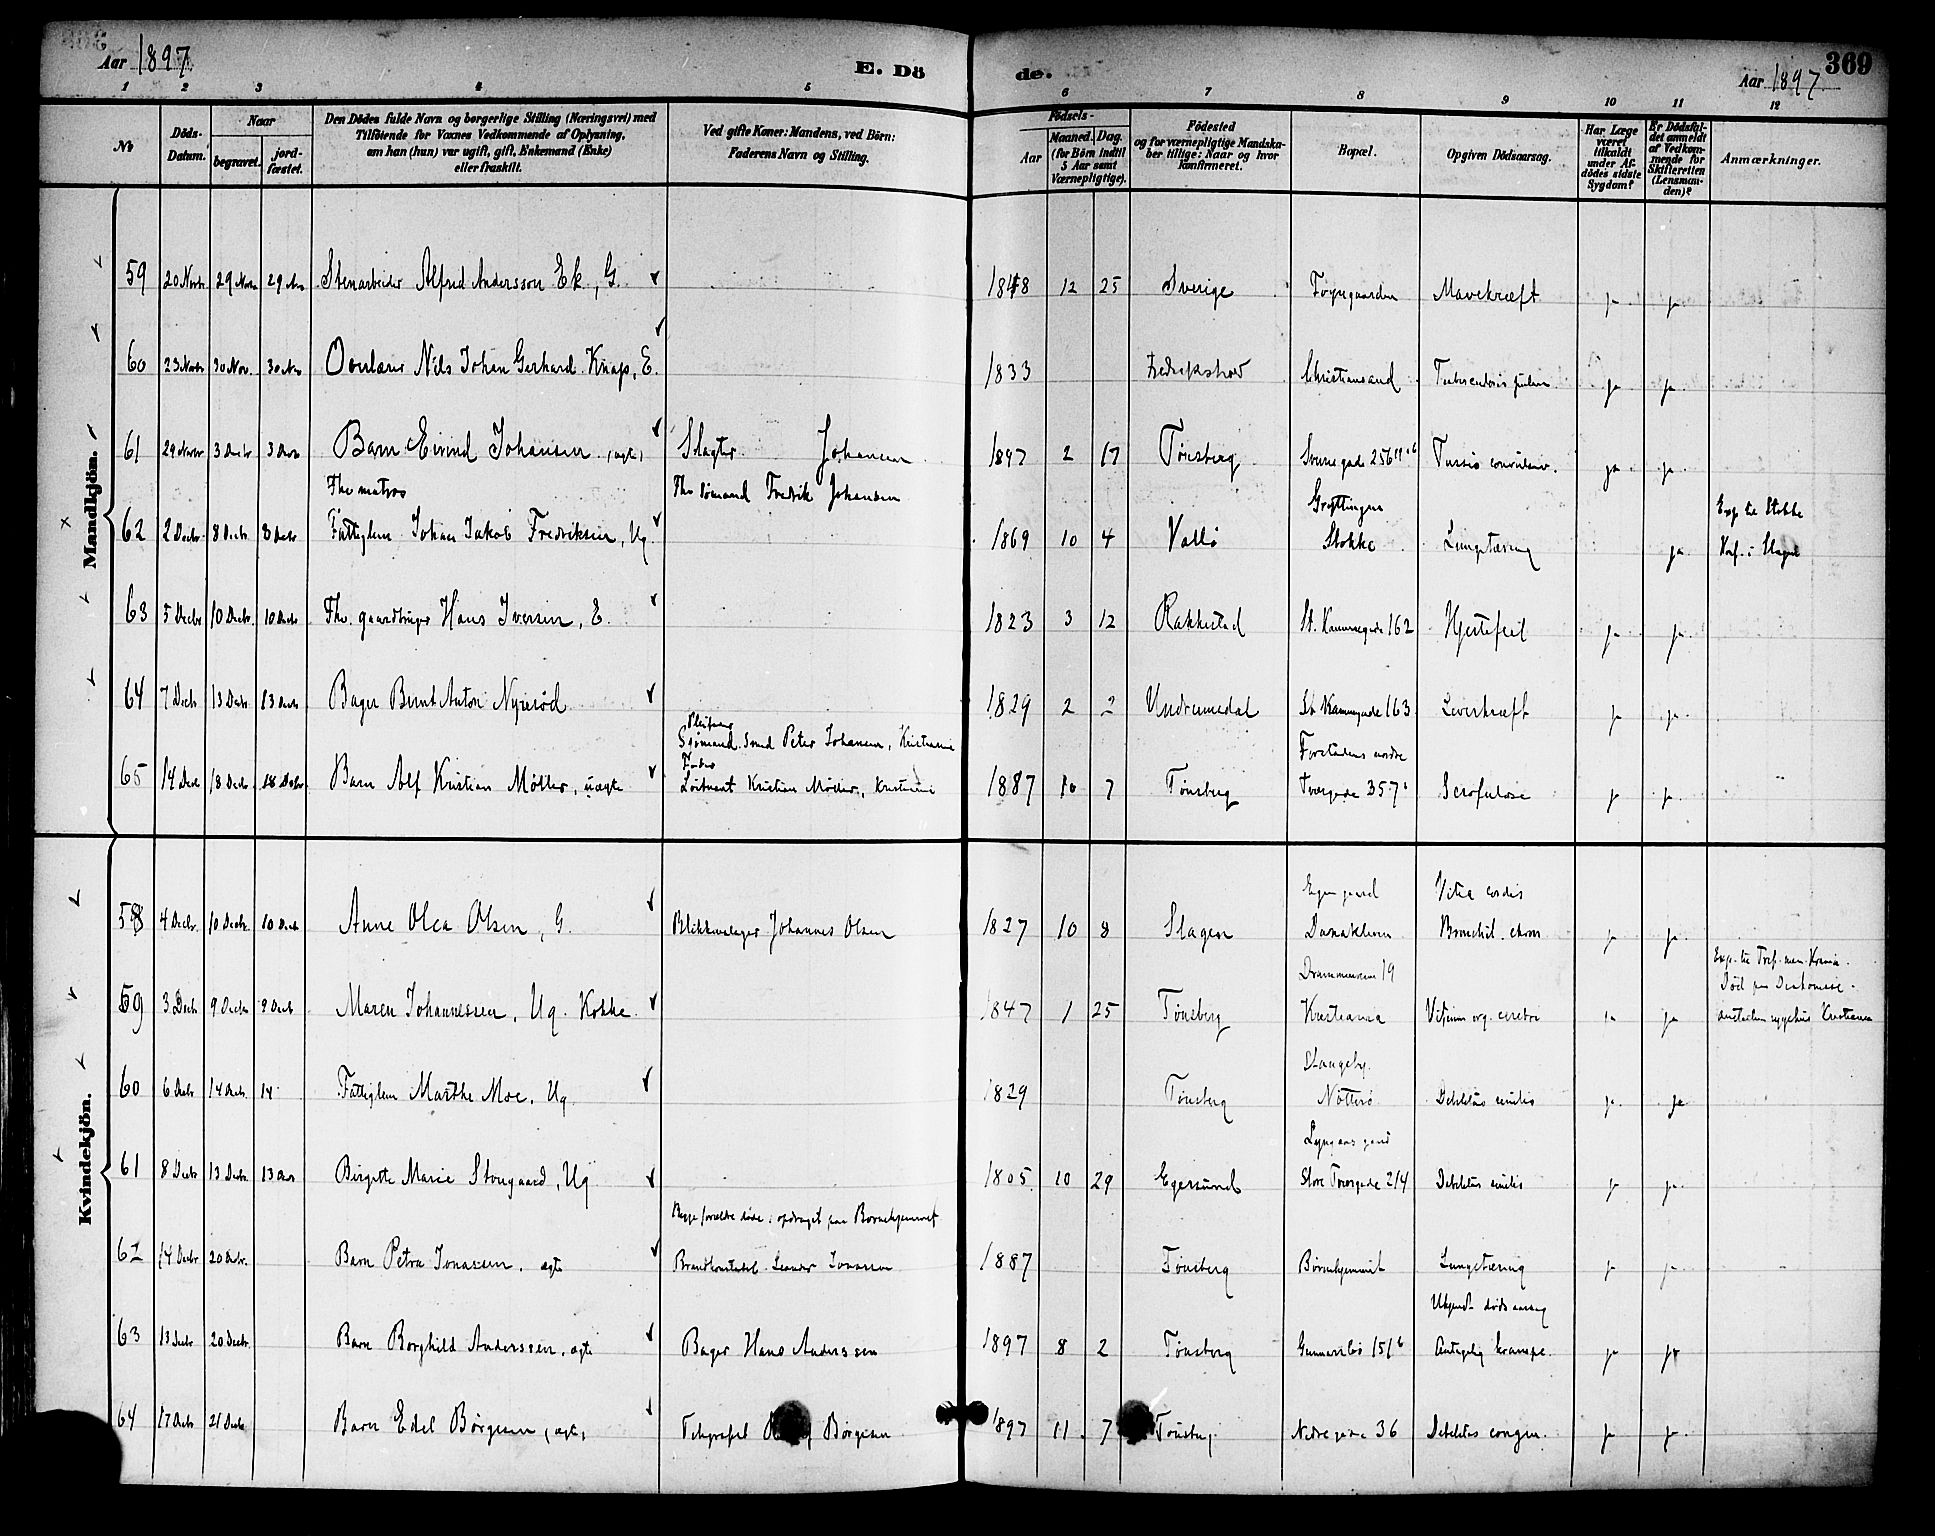 Aar 1897
E. Dö
de.
Aar 1897
369
1 2 3 4 5 6 7 8 9 10 11 12
No
Döds-Datum.
Naar
begravet.
jord-fæstet.
Den Dödes fulde Navn og borgerlige Stilling (Næringsvei) med
Tilföiende for Voxnes Vedkommende af Oplysning,
om han (hun) var ugift, gift, Enkemand (Enke)
eller fraskilt.
Ved gifte Koner: Mandens, ved Börn:
Faderens Navn og Stilling.
Födsels-
Aar
Maaned. Dag.
(for Börn indtil
5 Aar samt
Værnepligtige).
Födested
og for værnepligtige Mandska-
ber tillige: Naar og hvor
konfirmeret.
Bopæl.
Opgiven Dödsaarsag.
Har Læge
været
tilkaldt
under Af-
dödes sidste
Sygdom?
Er Dödsfal-
det anmeldt
af Vedkom-
mende for
Skifteretten
(Lensman-
den)?
Anmærkninger.
Mandkjön.
59 20 Novbr 29 Novbr 29 Nov Stenarbeider Alfred Andersson Ek, G. 1848 12 25 Sverige Mavekræft ja ja
60 23 Novbr 30 Nov. 30 Nov Overlærer Nils Johan Gerhard Knap, E. 1833 Christiansand ja ja
61 29 Novbr 3 Decbr 3 Decbr Barn Eivind Johansen, ægte, Slagter Johansen 1897 2 17 Tønsberg ja ja
Fhv matros Fhv sømand Fredrik Johansen Exp. til Stokke
62 2 Decbr 8 Decbr 8 Decbr Fattiglem Johan Jakob Fredriksen, Ug 1869 10 4 Vallø Stokke Lungetæring ja
63 5 Decbr 10 Decbr. 10 Decbr Fhv. gaardbruger Hans Iversen, E. 1823 3 12 Rakkestad St. Kannegade 162 Hjertefeil ja ja
64 7 Decbr 13 Decbr 13 Decbr Bager Bernt Anton Nyrerød 1829 2 2 Undrumsdal St Kannegade 163 Leverkræft ja ja
Pleifader
Sjømand Peter Johansen, Kristiania
Fader
65 14 Decbr 18 Decbr. 18 Decbr. Barn Alf Kristian Møller, uægte Løitnant Kristian Møller, Kristiania 1887 10 7 Tønsberg Tvergade 357 Scrofulose ja ja
Kvindekjön.
Vitia cordis
58 4 Decbr. 10 Decbr. 10 Decbr Anne Olea Olsen, G. Blikkenslager Johannes Olsen 1827 10 8 Slagen Bronchit. chron ja ja
Drammensvei 19
59 3 Decbr 9 Decbr 9 Decbr Maren Johannessen, Ug. Kokke 1847 1 25 Tønsberg Kristiania Vitium org. cerebri ja ja sygehus Kristiania
60 6 Decbr 14 Decbr. 14 Fattiglem Marthe Moe, Ug. 1829 Tønsberg Nøtterø Debilitas senilis ja ja
61 8 Decbr 13 Decbr. 13 Decbr Birgitte Marie Stougaard, Ug 1805 10 29 Egersund Store Tvergade 214 Debilitas senilis ja ja
Begge forældre døde: opdraget paa Børnehjemmet
62 14 Decbr 20 Decbr. Barn Petra Jonassen, ægte Brandkonstabel Leander Jonassen 1887 Tønsberg Børnehjemmet Lungetæring ja ja
Ukjendt dødsaarsag
63 13 Decbr 20 Decbr Barn Borghild Anderssen, ægte Bager Hans Anderssen 1897 8 2 Tønsberg Gunnarsbø 151 b Antagelig krampe. ja ja
64 17 Decbr 21 Decbr Barn Edel Børgesen, ægte, Børgesen 1897 11 7 Tønsberg Nedregade 36 Debilitas congen. ja ja